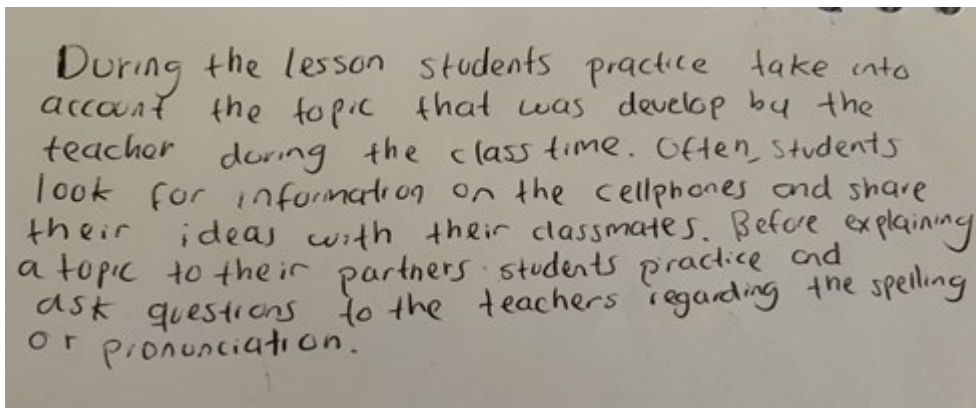 During the lesson students practice take into
account the topic that was develop by the
teacher during the class time. Often, students
look for information on the cellphones and share
their ideas with their classmates. Before explaining
a topic to their partners students practice and
ask questions to the teachers regarding the spelling
or pronunciation.